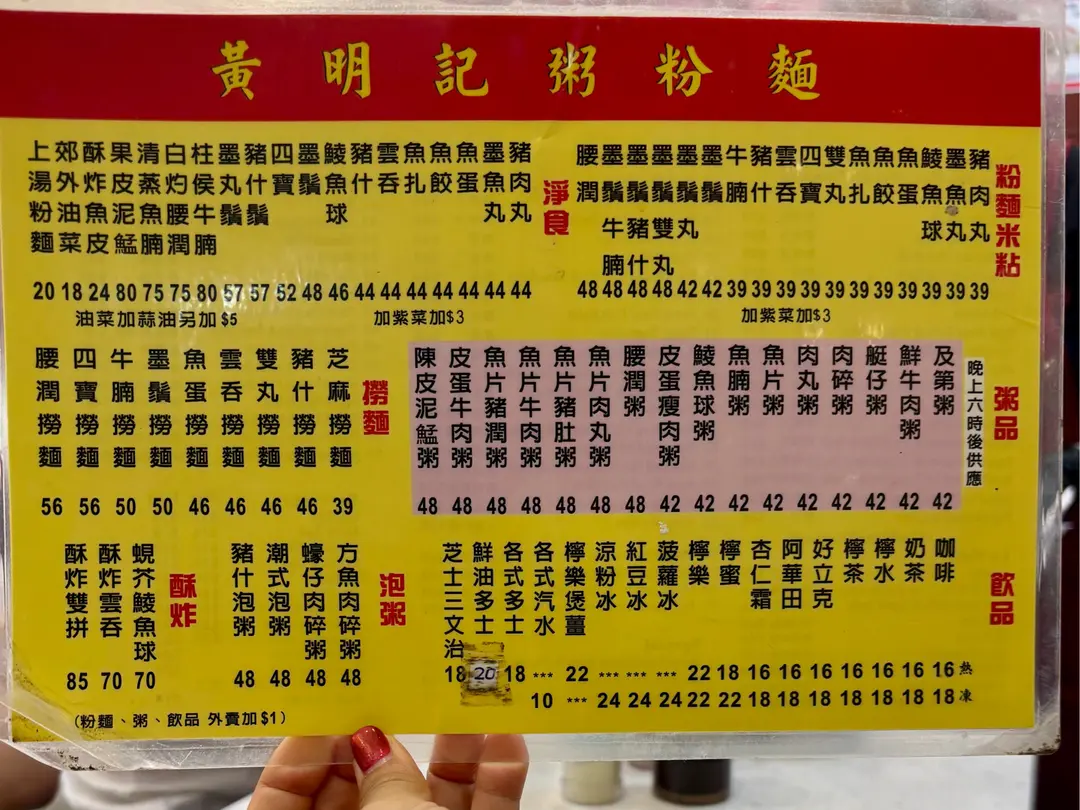 黃明記粥粉麵
粉麵米粘
豬肉丸 39
墨魚丸 39
鯪魚球 39
魚蛋 39
魚餃 39
魚扎 39
雙丸 39
四寶 39
雲吞 39
豬什 39
牛腩 39
墨鬚 42
墨鬚丸 42
墨鬚雙丸 48
墨鬚豬什 48
墨鬚牛腩 48
腰潤 48
加紫菜加$3
淨食
豬肉丸 44
墨魚丸 44
魚蛋 44
魚餃 44
魚扎 44
雲吞 44
豬什 44
鯪魚球 46
墨鬚 48
四寶 52
豬什鬚 57
墨丸鬚 57
柱侯牛腩 80
白灼腰潤 75
清蒸魚腩 75
果皮泥鯭 80
酥炸魚皮 24
郊外油菜 18
上湯粉麵 20
加紫菜加$3
油菜加蒜油另加$5
粥品
晚上六時後供應
及第粥 42
鮮牛肉粥 42
艇仔粥 42
肉碎粥 42
肉丸粥 42
魚片粥 42
魚腩粥 42
鯪魚球粥 42
皮蛋瘦肉粥 42
腰潤粥 48
魚片肉丸粥 48
魚片豬肚粥 48
魚片牛肉粥 48
魚片豬潤粥 48
皮蛋牛肉粥 48
陳皮泥鯭粥 48
撈麵
芝麻撈麵 39
豬什撈麵 46
雙丸撈麵 46
雲吞撈麵 46
魚蛋撈麵 46
墨鬚撈麵 50
牛腩撈麵 50
四寶撈麵 56
腰潤撈麵 56
飲品
熱 凍
咖啡 16 18
奶茶 16 18
檸水 16 18
檸茶 16 18
好立克 16 18
阿華田 16 18
杏仁霜 16 18
檸蜜 18 22
檸樂 22 22
菠蘿冰 *** 24
紅豆冰 *** 24
涼粉冰 *** 24
檸樂煲薑 22 ***
各式汽水 *** 10
各式多士 18
鮮油多士 20
芝士三文治 18
泡粥
方魚肉碎粥 48
蠔仔肉碎粥 48
潮式泡粥 48
豬什泡粥 48
酥炸
蜆芥鯪魚球 70
酥炸雲吞 70
酥炸雙拼 85
(粉麵、粥、飲品 外賣加$1)